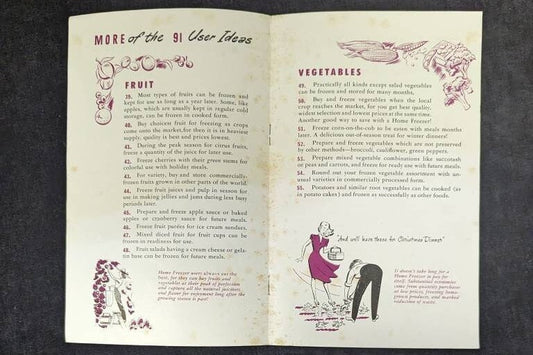 MORE of the 91 User Ideas
FRUIT
39. Most types of fruits can be frozen and
kept for use as long as a year later. Some, like
apples, which are usually kept in regular cold
storage, can be frozen in cooked form.
40. Buy choicest fruit for freezing as crops
come onto the market, for then it is in heaviest
supply; quality is best and prices lowest.
41. During the peak season for citrus fruits,
freeze a quantity of the juice for later use.
42. Freeze cherries with their green stems for
colorful use with holiday meals.
43. For variety, buy and store commercially-
frozen fruits grown in other parts of the world.
44. Freeze fruit juices and pulp in season for
use in making jellies and jams during less busy
periods later.
45. Prepare and freeze apple sauce or baked
apples or cranberry sauce for future meals.
46. Freeze fruit purées for ice cream sundaes.
47. Mixed diced fruit for fruit cups can be
frozen in readiness for use.
48. Fruit salads having a cream cheese or gela-
tin base can be frozen for future meals.
Home Freezer users always eat the
best, for they can buy fruits and
vegetables at their peak of perfection
and capture all the natural juiciness
and flavor for enjoyment long after the
growing season is past!
VEGETABLES
49. Practically all kinds except salad vegetables
can be frozen and stored for many months.
50. Buy and freeze vegetables when the local
crop reaches the market, for you get best quality,
widest selection and lowest prices at the same time.
Another good way to save with a Home Freezer!
51. Freeze corn-on-the-cob to be eaten with meals months
later. A delicious out-of-season treat for winter dinners!
52. Prepare and freeze vegetables which are not preserved
by other methods—broccoli, cauliflower, green peppers.
53. Prepare mixed vegetable combinations like succotash
or peas and carrots, and freeze for ready use with future meals.
54. Round out your frozen vegetable assortment with un-
usual varieties in commercially processed form.
55. Potatoes and similar root vegetables can be cooked (as
in potato cakes) and frozen as successfully as other foods.
"And we'll have these for Christmas Dinner"
It doesn't take long for a
Home Freezer to pay for
itself. Substantial economies
come from quantity purchases
at low prices, freezing home-
grown produce, and marked
reduction of waste.